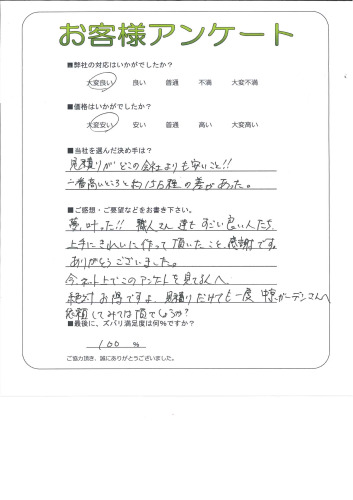 お客様アンケート
■弊社の対応はいかがでしたか?
大変良い 良い 普通 不満 大変不満
■価格はいかがでしたか?
大変安い 安い 普通 高い 大変高い
■当社を選んだ決め手は?
見積りがどこの会社よりも安いこと!!
一番高いところと約15万程の差があった。
■ご感想・ご要望などをお書き下さい。
夢叶った!! 職人さん達もすごい良い人たち
上手にきれいに作って頂いたこと感謝です。
ありがとうございました。
今ネット上でこのアンケートを見てる人へ
絶対お得ですよ。見積りだけでも一度 ガーデンさんへ
依頼してみては頂でしょうか?
■最後に、ズバリ満足度は何%ですか?
100 %
ご協力頂き、誠にありがとうございました。